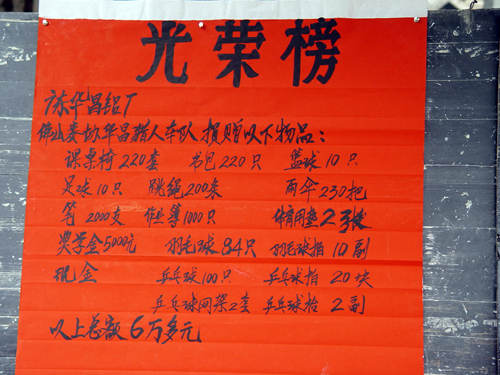 光荣榜
广东华昌铝厂
佛山 华昌猎人车队 捐赠以下物品:
课桌椅220套 书包220只 篮球10只
足球10只 跳绳200条 雨伞230把
笔2000支 作业簿1000只 体育用垫2
奖学金5000元 羽毛球84只 羽毛球拍10副
现金 乒乓球100只 乒乓球拍20块
乒乓球网架2套 乒乓球抬2副
以上总额6万多元